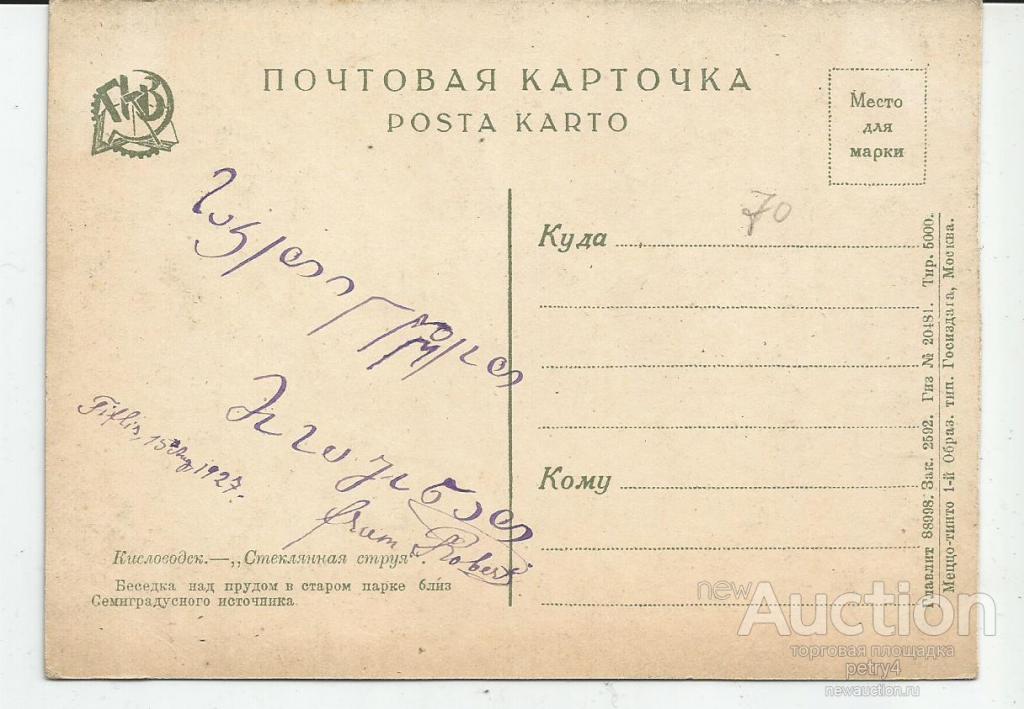 ГКВ
ПОЧТОВАЯ КАРТОЧКА
POSTA KARTO
Место
для
марки
70
Куда
Кому
Tiflis, 15 Aug. 1927.
from Robert
Кисловодск.—„Стеклянная струя“.
Беседка над прудом в старом парке близ
Семиградусного источника.
Главлит 88998. Зак. 2592. Гиз № 20481. Тир. 5000.
Меццо-тинто 1-й Образ. тип. Госиздата, Москва.
newAuction
торговая площадка
petry4
newauction.ru